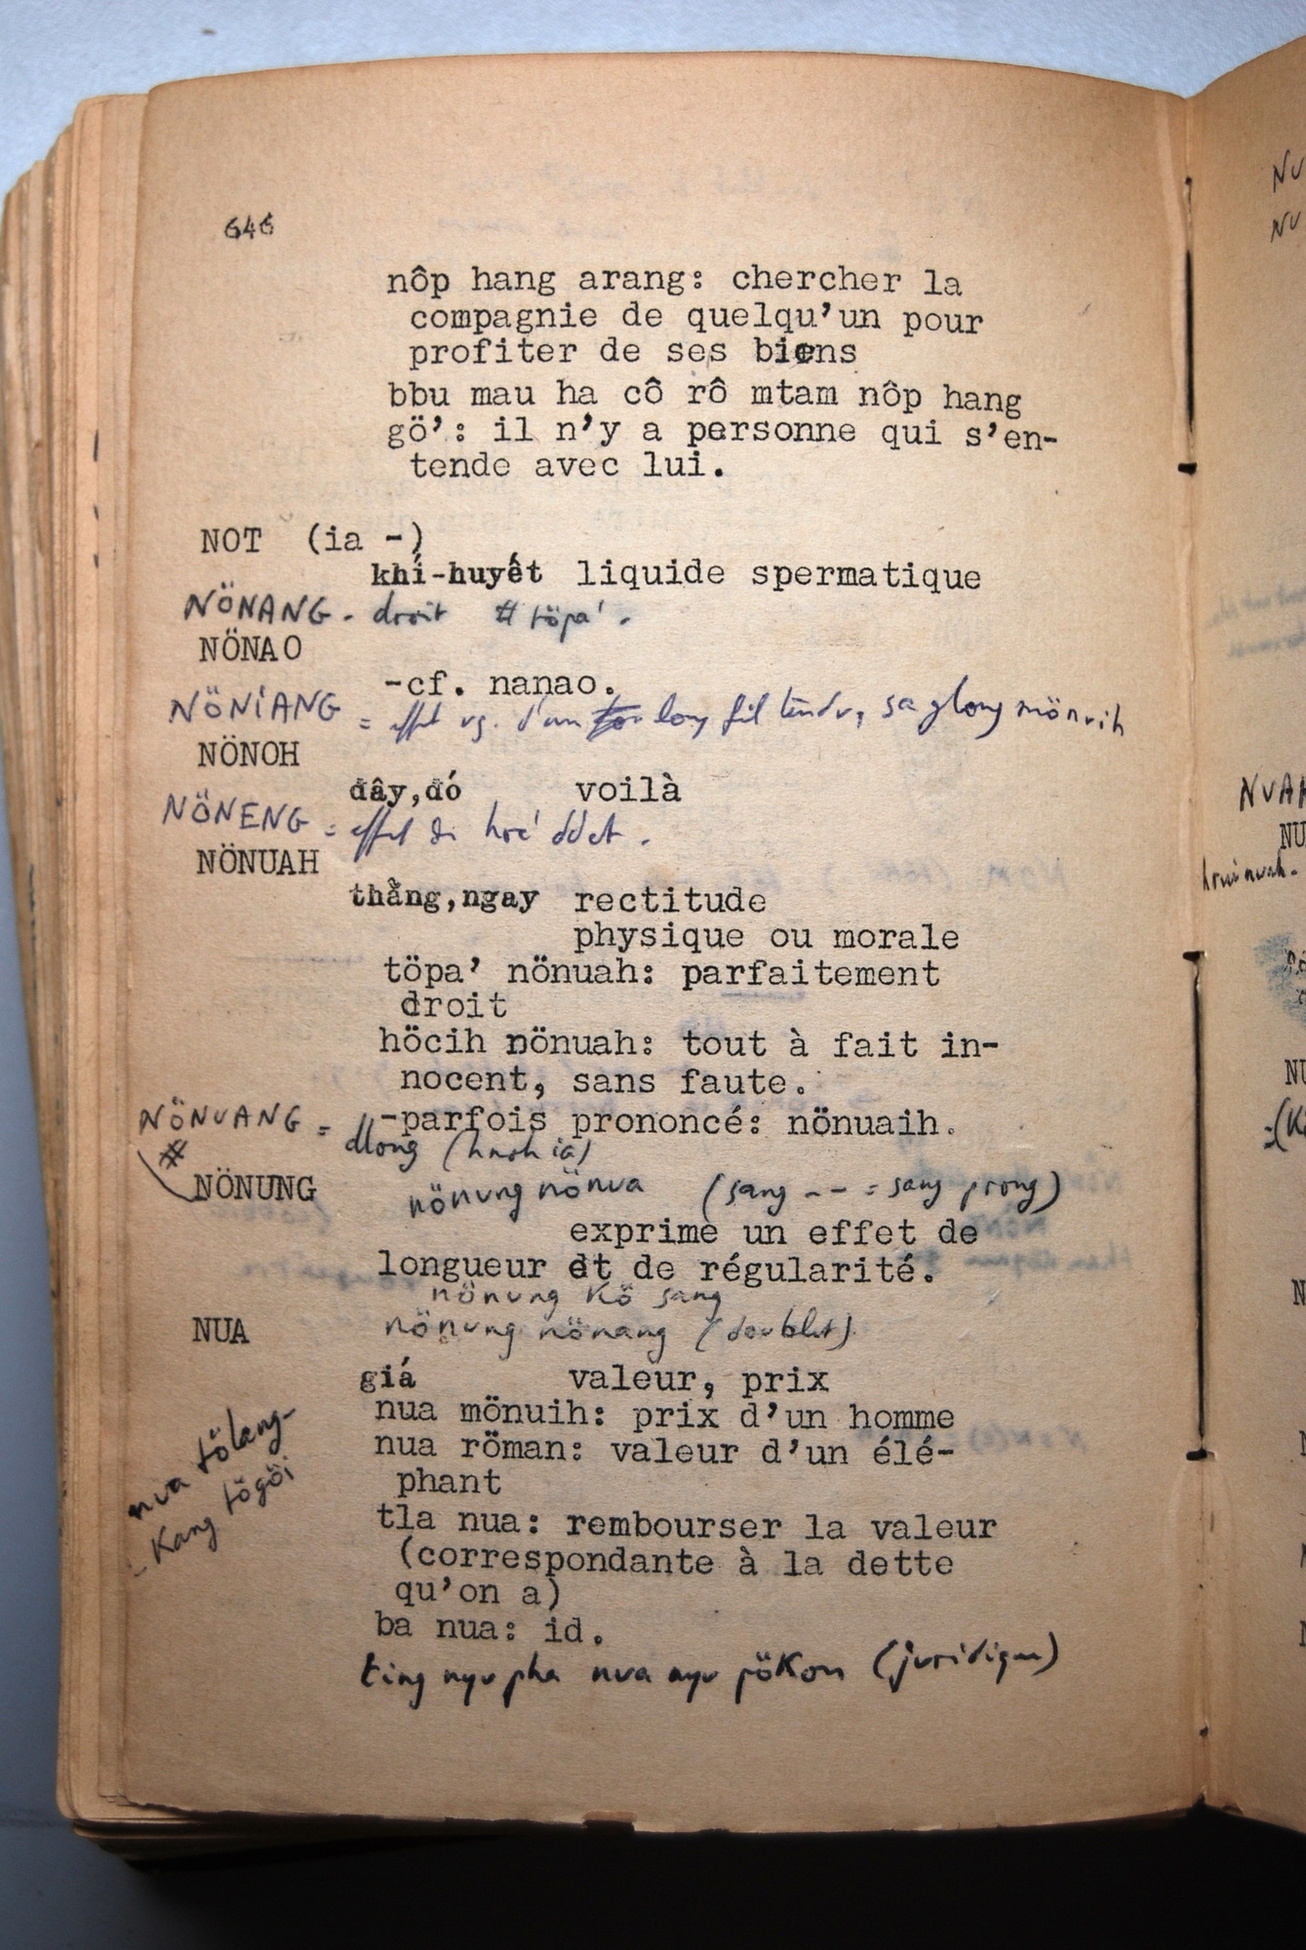 646
nôp hang arang: chercher la
compagnie de quelqu'un pour
profiter de ses biens
bbu mau ha cô rô mtam nôp hang
gö': il n'y a personne qui s'en-
tende avec lui.
NOT (ia -)
khí-huyết liquide spermatique
NÖNANG - droit # töpa'.
NÖNAO
-cf. nanao.
NÖNIANG = effet vg. d'un long fil tendu, sa glong mönuih
NÖNOH
đây, đó voilà
NÖNENG = effet di hré ddet.
NÖNUAH
thẳng, ngay rectitude
physique ou morale
töpa' nönuah: parfaitement
droit
höcih nönuah: tout à fait in-
nocent, sans faute.
-parfois prononcé: nönuaih.
NÖNUANG = dlong (hnoh ia)
#
NÖNUNG nönung nönua (sang -- = sang prong)
exprime un effet de
longueur et de régularité.
nönung kö sang
NUA nönung nönang (doublet)
giá valeur, prix
nua mönuih: prix d'un homme
nua röman: valeur d'un élé-
phant
nua tölang-
Kang tögöi
tla nua: rembourser la valeur
(correspondante à la dette
qu'on a)
ba nua: id.
ting nyu pha nua nyu pökon (juridique)
NU
NU
NUAH
NU
hruê nuah-
NU